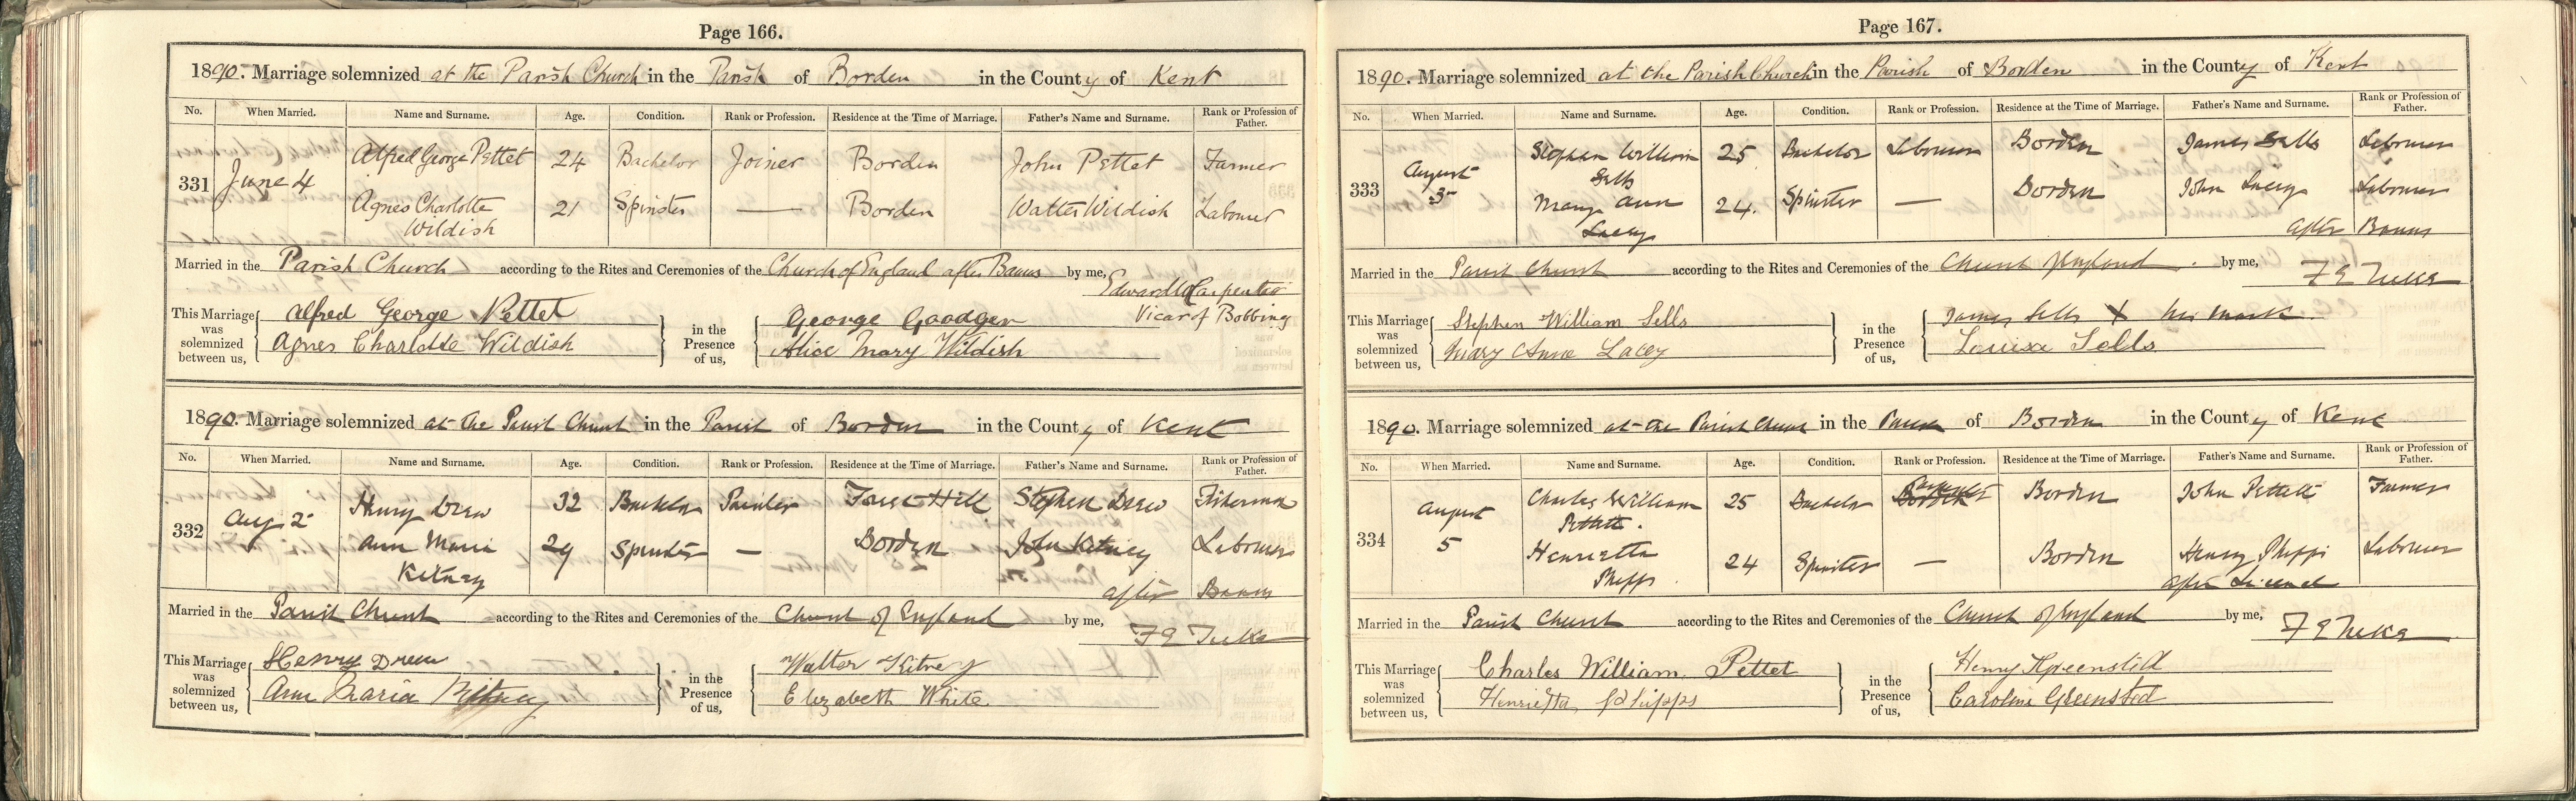 Page 166.
1890. Marriage solemnized at the Parish Church in the Parish of Borden in the County of Kent
No. When Married. Name and Surname. Age. Condition. Rank or Profession. Residence at the Time of Marriage. Father's Name and Surname. Rank or Profession of Father.
331 June 4 Alfred George Pettet 24 Bachelor Joiner Borden John Pettet Farmer
Agnes Charlotte Wildish 21 Spinster — Borden Walter Wildish Labourer
Married in the Parish Church according to the Rites and Ceremonies of the Church of England after Banns by me, Edward Carpenter
Vicar of Bobbing
This Marriage was solemnized between us, Alfred George Pettet in the Presence of us, George Goodger
Agnes Charlotte Wildish Alice Mary Wildish
1890. Marriage solemnized at the Parish Church in the Parish of Borden in the County of Kent
No. When Married. Name and Surname. Age. Condition. Rank or Profession. Residence at the Time of Marriage. Father's Name and Surname. Rank or Profession of Father.
332 Aug 2 Henry Drew 32 Bachelor Painter Forest Hill Stephen Drew Fisherman
Ann Maria Kitney 29 Spinster — Borden John Kitney Labourer
after Banns
Married in the Parish Church according to the Rites and Ceremonies of the Church of England by me, F E Tuke
This Marriage was solemnized between us, Henry Drew in the Presence of us, Walter Kitney
Ann Maria Kitney Elizabeth White
Page 167.
1890. Marriage solemnized at the Parish Church in the Parish of Borden in the County of Kent
No. When Married. Name and Surname. Age. Condition. Rank or Profession. Residence at the Time of Marriage. Father's Name and Surname. Rank or Profession of Father.
333 August 3 Stephen William Sells 25 Bachelor Labourer Borden James Sells Labourer
Mary Ann Lacey 24. Spinster — Borden John Lacey Labourer
after Banns
Married in the Parish Church according to the Rites and Ceremonies of the Church of England by me, F E Tuke
This Marriage was solemnized between us, Stephen William Sells in the Presence of us, James Sells X his mark
Mary Anne Lacey Louisa Sells
1890. Marriage solemnized at the Parish Church in the Parish of Borden in the County of Kent
No. When Married. Name and Surname. Age. Condition. Rank or Profession. Residence at the Time of Marriage. Father's Name and Surname. Rank or Profession of Father.
334 August 5 Charles William Pettett. 25 Bachelor Borden John Pettett Farmer
Henrietta Phipps 24 Spinster — Borden Henry Phipps Labourer
after Licence
Married in the Parish Church according to the Rites and Ceremonies of the Church of England by me, F E Tuke
This Marriage was solemnized between us, Charles William Pettet in the Presence of us, Henry Greensted
Henrietta Phipps Caroline Greensted